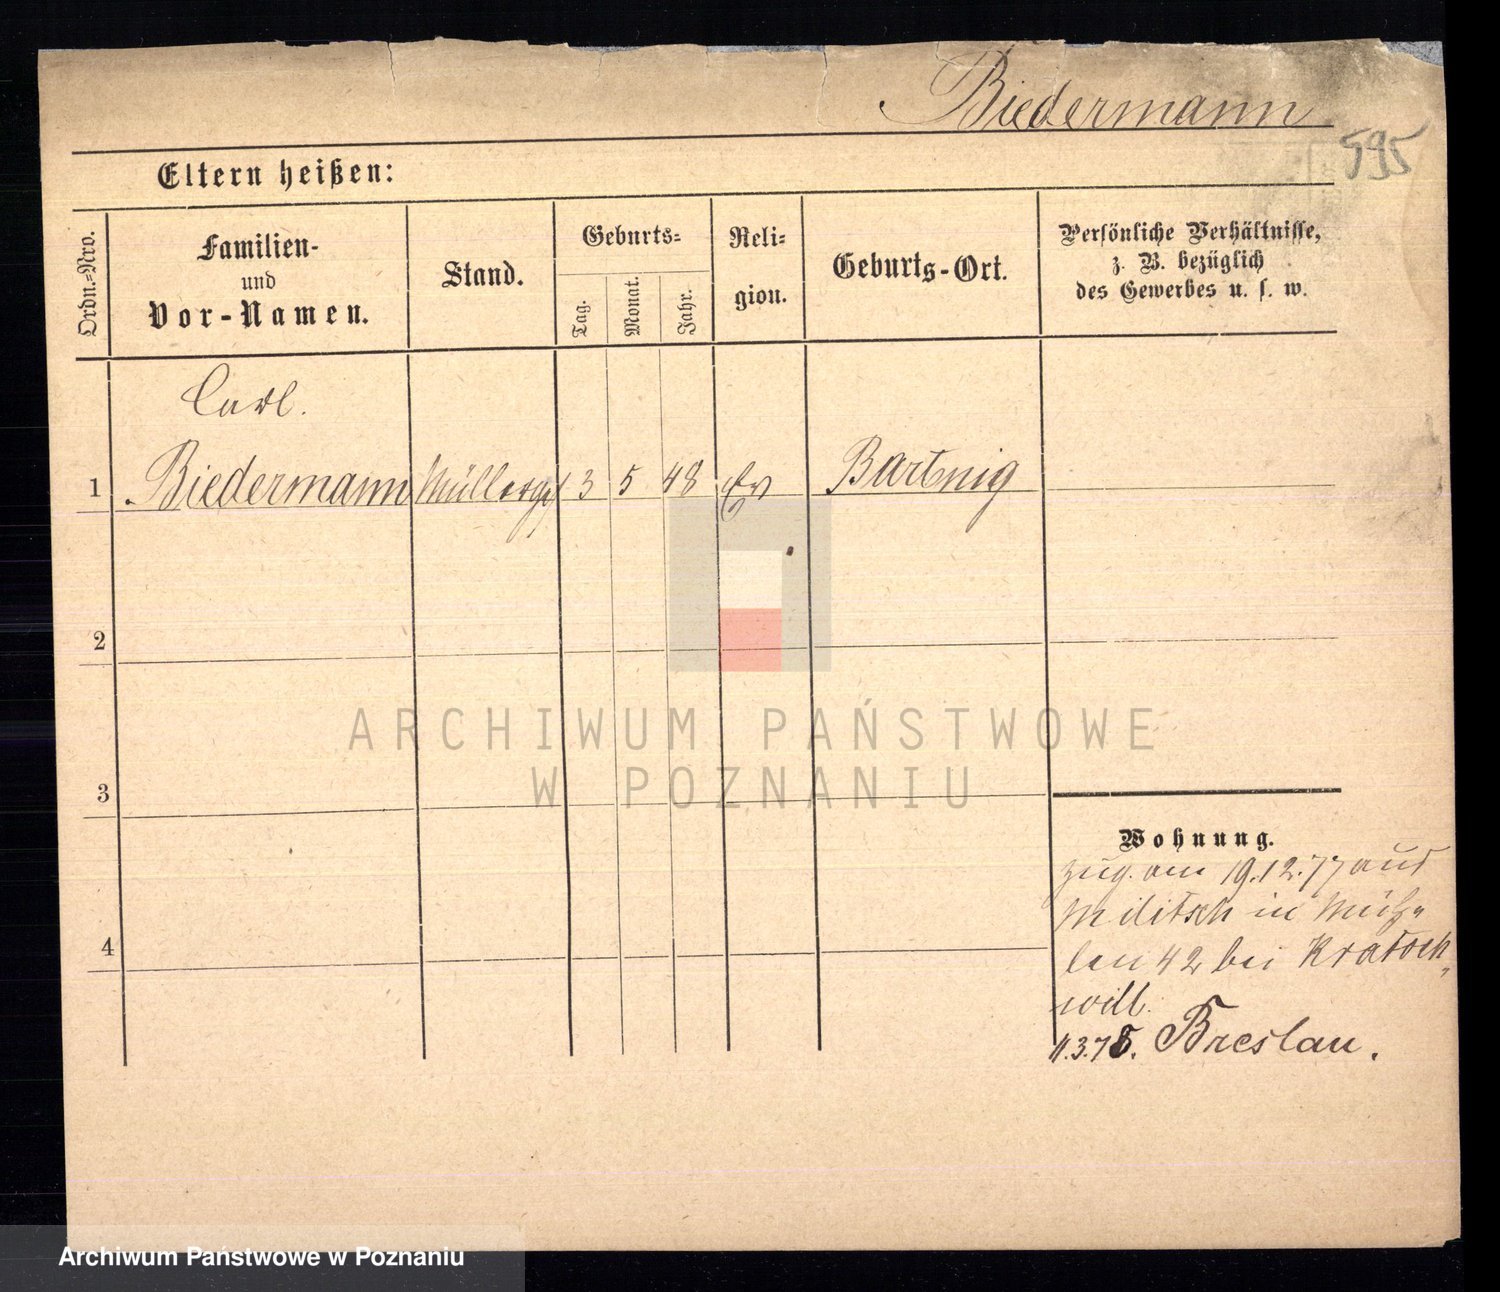 Biedermann
595
Eltern heißen:
Ordn.-Nro.
Familien-
und
Vor-Namen.
Stand.
Geburts-
Tag.
Monat.
Jahr.
Reli-
gion.
Geburts-Ort.
Persönliche Verhältnisse,
z. B. bezüglich
des Gewerbes u. s. w.
Carl.
1 Biedermann Müllerges 3 5 48 Ev Bartnig
2
3
4
Wohnung.
zug. am 19.12.77 aus
Militsch in Müh-
len 42 bei Kratoch-
will.
11.3.78. Breslau.
ARCHIWUM PAŃSTWOWE
W POZNANIU
Archiwum Państwowe w Poznaniu